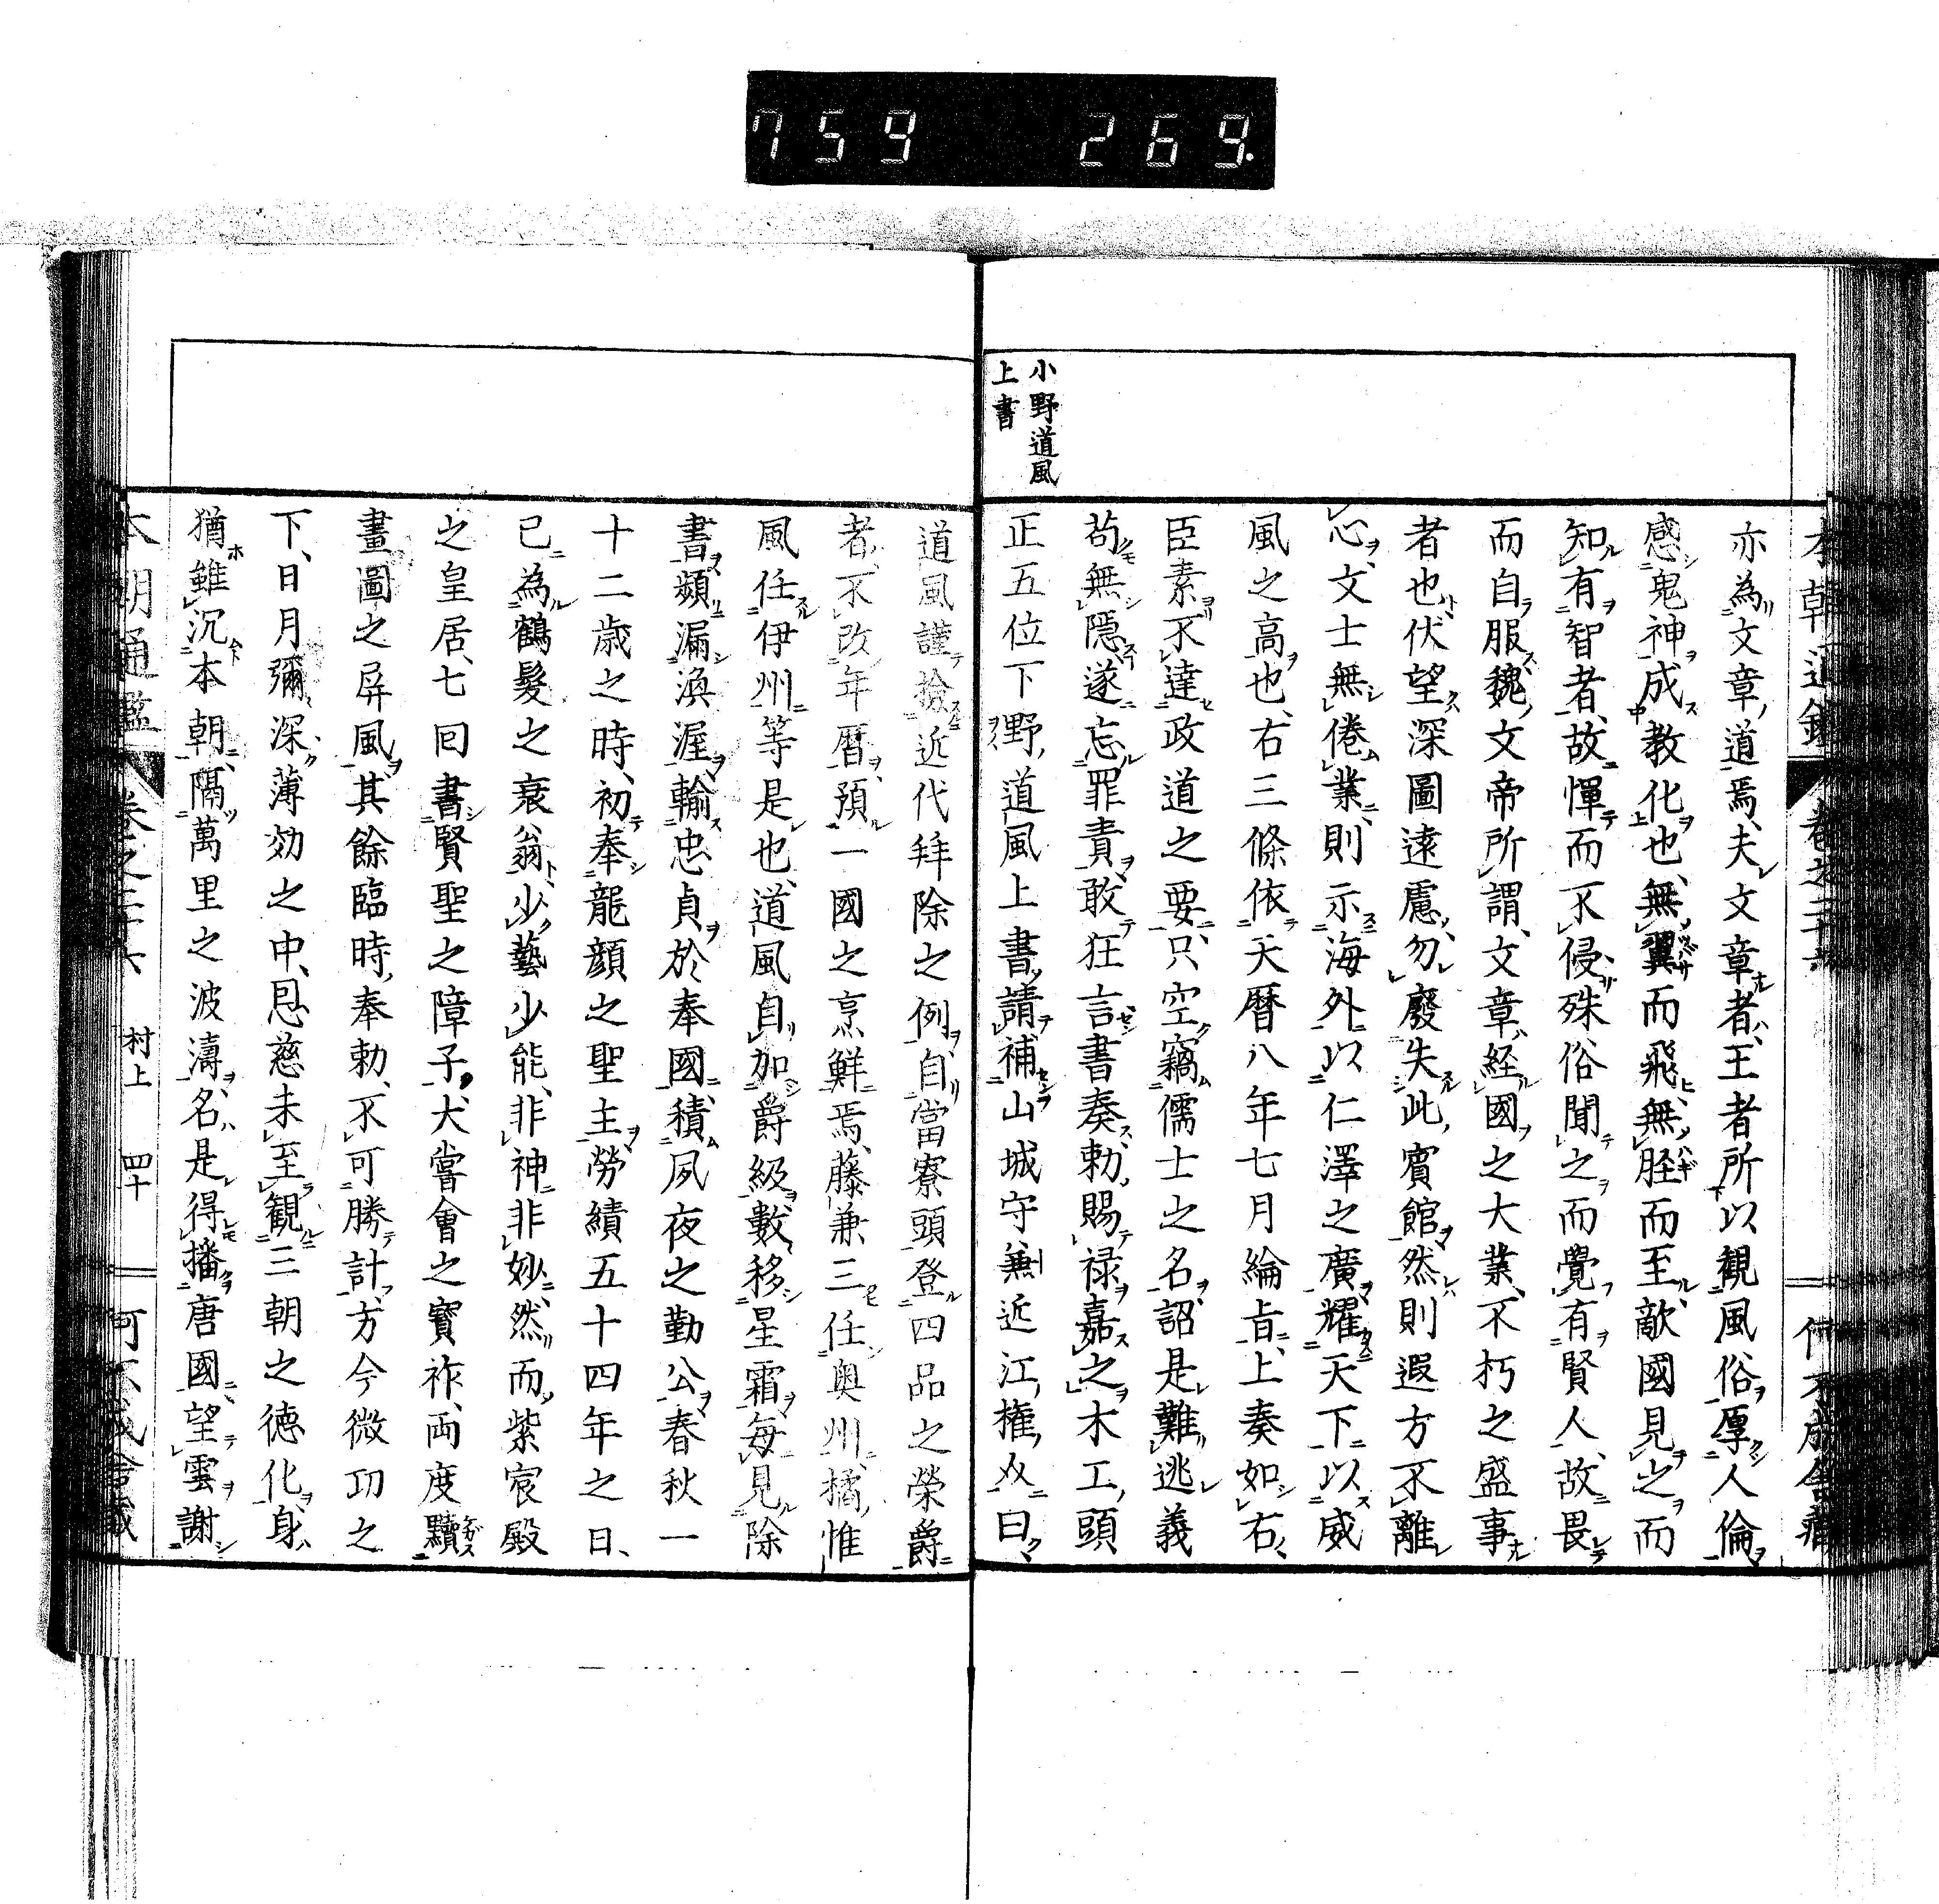 759 269.
本朝通鑑 卷之二十六
小野道風
上書
亦為文章道焉、夫文章者、王者所以観風俗厚人倫
感鬼神成教化也、無翼而飛、無脛而至、敵國見之而
知有智者、故憚而不侵、殊俗聞之而覺有賢人、故畏
而自服、魏文帝所謂、文章經國之大業、不朽之盛事
者也、伏望深圖遠慮、勿廢失此賓館、然則遐方不離
心、文士無倦業、則示海外以仁澤之廣、耀天下以威
風之高也、右三條依天暦八年七月綸旨、上奏如右、
臣素不達政道之要、只空竊儒士之名、詔是難逃義
苟無隠、遂忘罪責、敢狂言書奏、勅賜禄嘉之、木工頭
正五位下野道風上書、請補山城守兼近江權、其文曰
道風謹撿近代拜除之例、自當寮頭登四品之榮爵
者、不改年暦、預一國之烹鮮焉、藤兼三任奥州、橘惟
風任伊州等是也、道風自加爵級、數移星霜、毎見除
書、頻漏渙渥、輸忠貞於奉國、積夙夜之勤公、春秋一
十二歳之時、初奉龍顔之聖主、勞績五十四年之日、
已為鶴髮之衰翁、少藝少能、非神非妙、然而紫宸殿
之皇居、七回書賢聖之障子、大嘗會之寳祚、両度黷
畫圖之屏風、其餘臨時奉勅、不可勝計、方今微功之
下、日月彌深、薄効之中、恩慈未至、観三朝之德化、身
猶雖沉本朝、隔萬里之波濤、名是得播唐國、望雲謝
本朝通鑑 卷之二十六 村上 四十